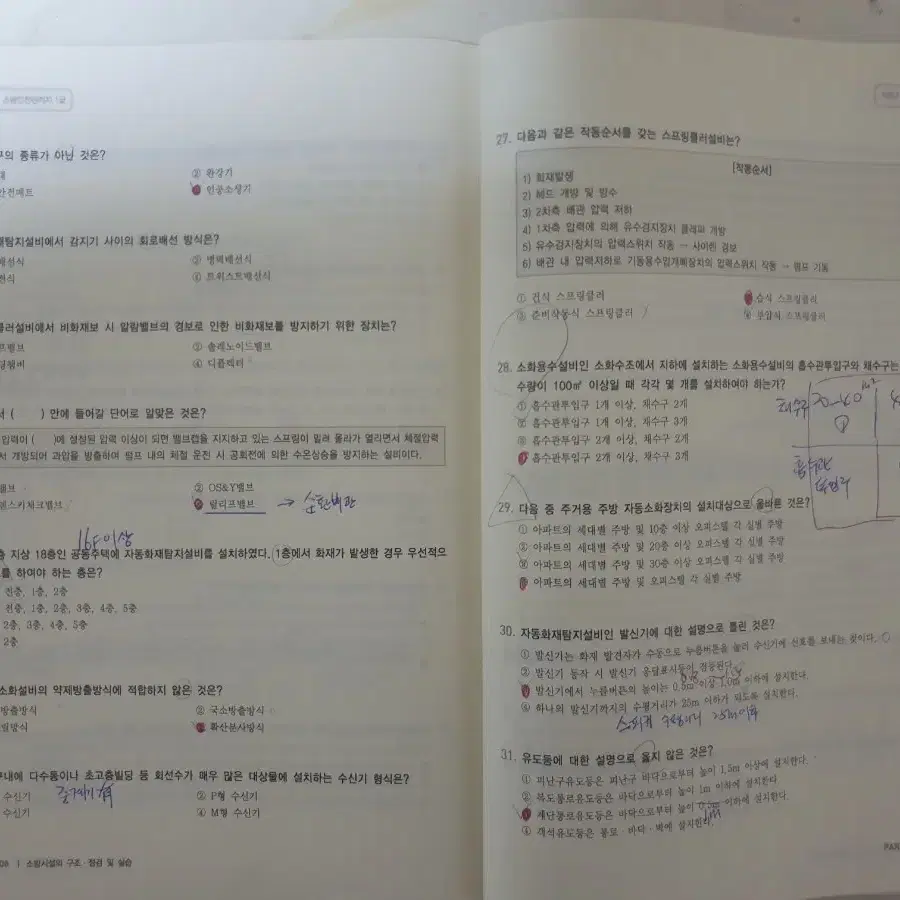 소방안전관리자 1급
구의 종류가 아닌 것은?
대 ② 완강기
안전매트 인공소생기
재탐지설비에서 감지기 사이의 회로배선 방식은?
배선식 ③ 병렬배선식
전식 ④ 트위스트배선식
클러설비에서 비화재보 시 알람밸브의 경보로 인한 비화재보를 방지하기 위한 장치는?
프밸브 ② 솔레노이드밸브
징챔버 ④ 디플렉터
서 ( ) 안에 들어갈 단어로 알맞은 것은?
압력이 ( )에 설정된 압력 이상이 되면 밸브캡을 지지하고 있는 스프링이 밀려 올라가 열리면서 체절압력
서 개방되어 과압을 방출하여 펌프 내의 체절 운전 시 공회전에 의한 수온상승을 방지하는 설비이다.
밸브 ② OS&Y밸브
렌스키체크밸브 릴리프밸브 → 순환배관
16F이상
층 지상 18층인 공동주택에 자동화재탐지설비를 설치하였다. 1층에서 화재가 발생한 경우 우선적으
를 하여야 하는 층은?
전층, 1층, 2층
전층, 1층, 2층, 3층, 4층, 5층
2층, 3층, 4층, 5층
2층
소화설비의 약제방출방식에 적합하지 않은 것은?
방출방식 ② 국소방출방식
릴방식 확산분사방식
구내에 다수동이나 초고층빌딩 등 회선수가 매우 많은 대상물에 설치하는 수신기 형식은?
수신기 중계기 有 ② P형 수신기
수신기 ④ M형 수신기
08 | 소방시설의 구조·점검 및 실습
27. 다음과 같은 작동순서를 갖는 스프링클러설비는?
[작동순서]
1) 화재발생
2) 헤드 개방 및 방수
3) 2차측 배관 압력 저하
4) 1차측 압력에 의해 유수검지장치 클래퍼 개방
5) 유수검지장치의 압력스위치 작동 → 사이렌 경보
6) 배관 내 압력저하로 기동용수압개폐장치의 압력스위치 작동 → 펌프 기동
① 건식 스프링클러 습식 스프링클러
③ 준비작동식 스프링클러 ④ 부압식 스프링클러
28. 소화용수설비인 소화수조에서 지하에 설치하는 소화용수설비의 흡수관투입구와 채수구는
수량이 100㎥ 이상일 때 각각 몇 개를 설치하여야 하는가?
① 흡수관투입구 1개 이상, 채수구 2개
② 흡수관투입구 1개 이상, 채수구 3개
③ 흡수관투입구 2개 이상, 채수구 2개
흡수관투입구 2개 이상, 채수구 3개
채수구 20~40
①
흡수관
투입구
29. 다음 중 주거용 주방 자동소화장치의 설치대상으로 올바른 것은?
① 아파트의 세대별 주방 및 10층 이상 오피스텔 각 실별 주방
② 아파트의 세대별 주방 및 20층 이상 오피스텔 각 실별 주방
③ 아파트의 세대별 주방 및 30층 이상 오피스텔 각 실별 주방
아파트의 세대별 주방 및 오피스텔 각 실별 주방
30. 자동화재탐지설비인 발신기에 대한 설명으로 틀린 것은?
① 발신기는 화재 발견자가 수동으로 누름버튼을 눌러 수신기에 신호를 보내는 것이다. ○
② 발신기 동작 시 발신기 응답표시등이 점등된다.
발신기에서 누름버튼의 높이는 0.5m 이상 1.0m 이하에 설치한다.
④ 하나의 발신기까지의 수평거리가 25m 이하가 되도록 설치한다.
스피커 수평거리 25m이하
31. 유도등에 대한 설명으로 옳지 않은 것은?
① 피난구유도등은 피난구 바닥으로부터 높이 1.5m 이상에 설치한다.
② 복도통로유도등은 바닥으로부터 높이 1m 이하에 설치한다.
계단통로유도등은 바닥으로부터 높이 0.5m 이하에 설치한다.
1m
④ 객석유도등은 통로·바닥·벽에 설치한다.
PAR